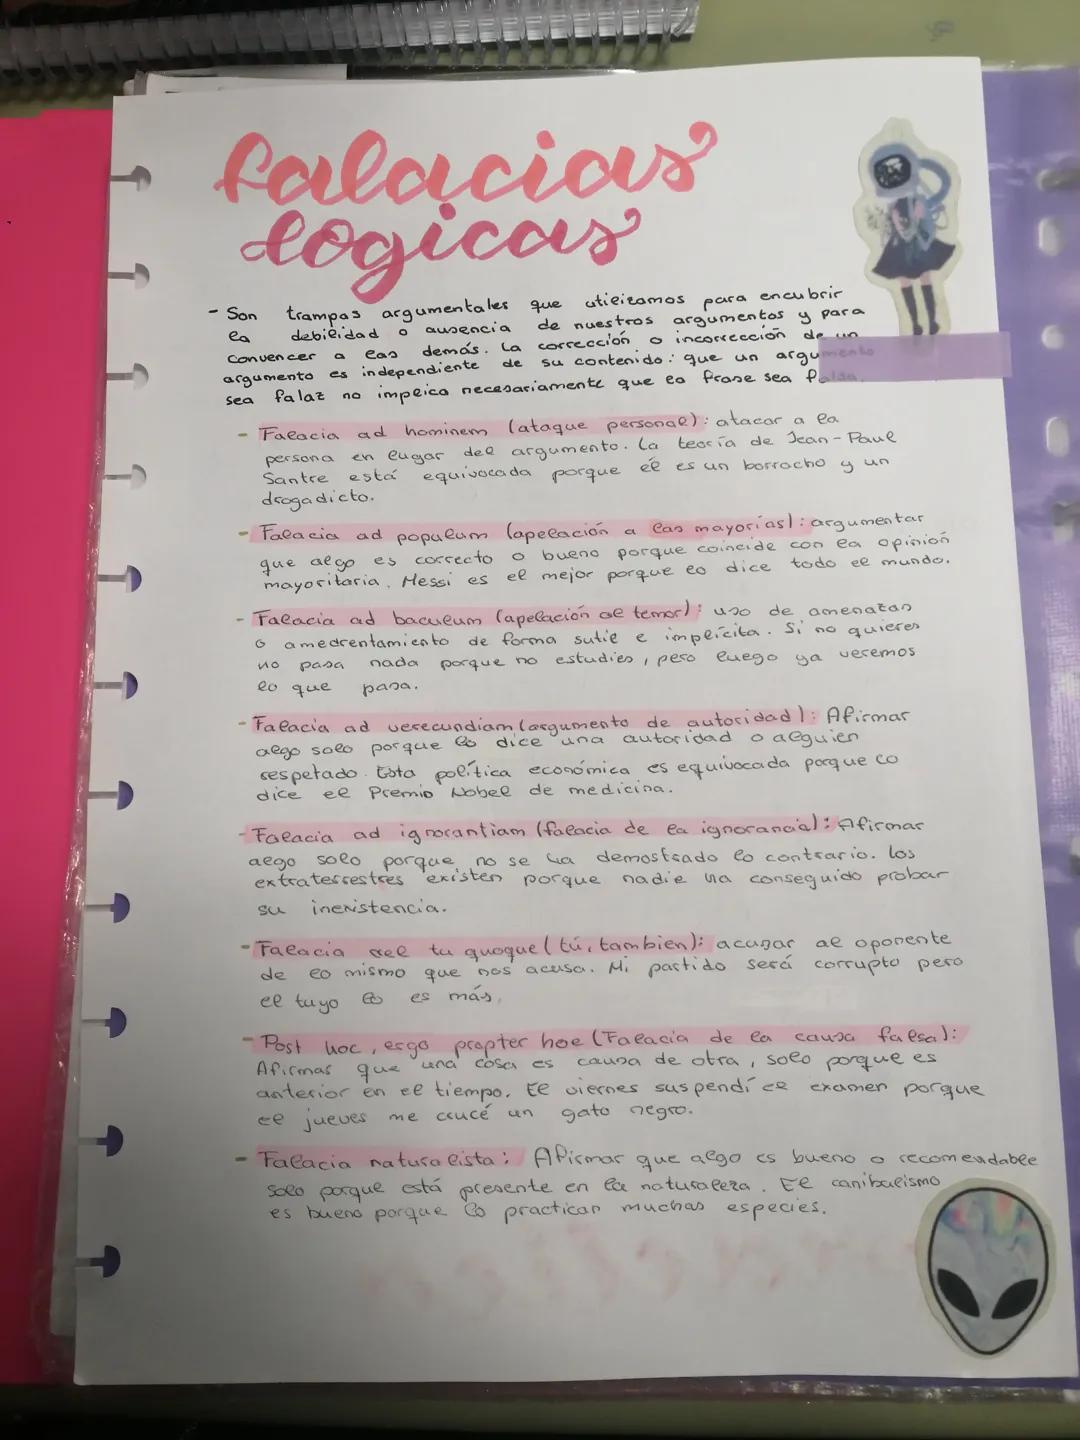 falacias
logicas
- Son trampas argumentales que utilizamos para encubrir
la debilidad o ausencia de nuestros argumentos y para
convencer a las demás. La corrección o incorrección de un
argumento es independiente de su contenido: que un argumento
sea falaz no implica necesariamente que la frase sea falsa.
- Falacia ad hominem (ataque personal): atacar a la
persona en lugar del argumento. La teoría de Jean-Paul
Santre está equivocada porque él es un borracho y un
drogadicto.
- Falacia ad populum (apelación a las mayorías): argumentar
que algo es correcto o bueno porque coincide con la opinión
mayoritaria. Messi es el mejor porque lo dice todo el mundo.
- Falacia ad baculum (apelación al temor): uso de amenazas
o amedrentamiento de forma sutil e implícita. Si no quieres
no pasa nada porque no estudies, pero luego ya veremos
lo que pasa.
- Falacia ad verecundiam (argumento de autoridad): Afirmar
algo solo porque lo dice una autoridad o alguien
respetado. Esta política económica es equivocada porque lo
dice el Premio Nobel de medicina.
- Falacia ad ignorantiam (falacia de la ignorancia): Afirmar
algo solo porque no se ha demostrado lo contrario. Los
extraterrestres existen porque nadie ha conseguido probar
su inexistencia.
- Falacia del tu quoque (tú, tambien): acusar al oponente
de lo mismo que nos acusa. Mi partido será corrupto pero
el tuyo lo es más.
- Post hoc, ergo propter hoc (Falacia de la causa falsa):
Afirmas que una cosa es causa de otra, solo porque es
anterior en el tiempo. El viernes suspendí el examen porque
el jueves me crucé un gato negro.
- Falacia naturalista: Afirmar que algo es bueno o recomendable
solo porque está presente en la naturaleza. El canibalismo
es bueno porque lo practican muchas especies.